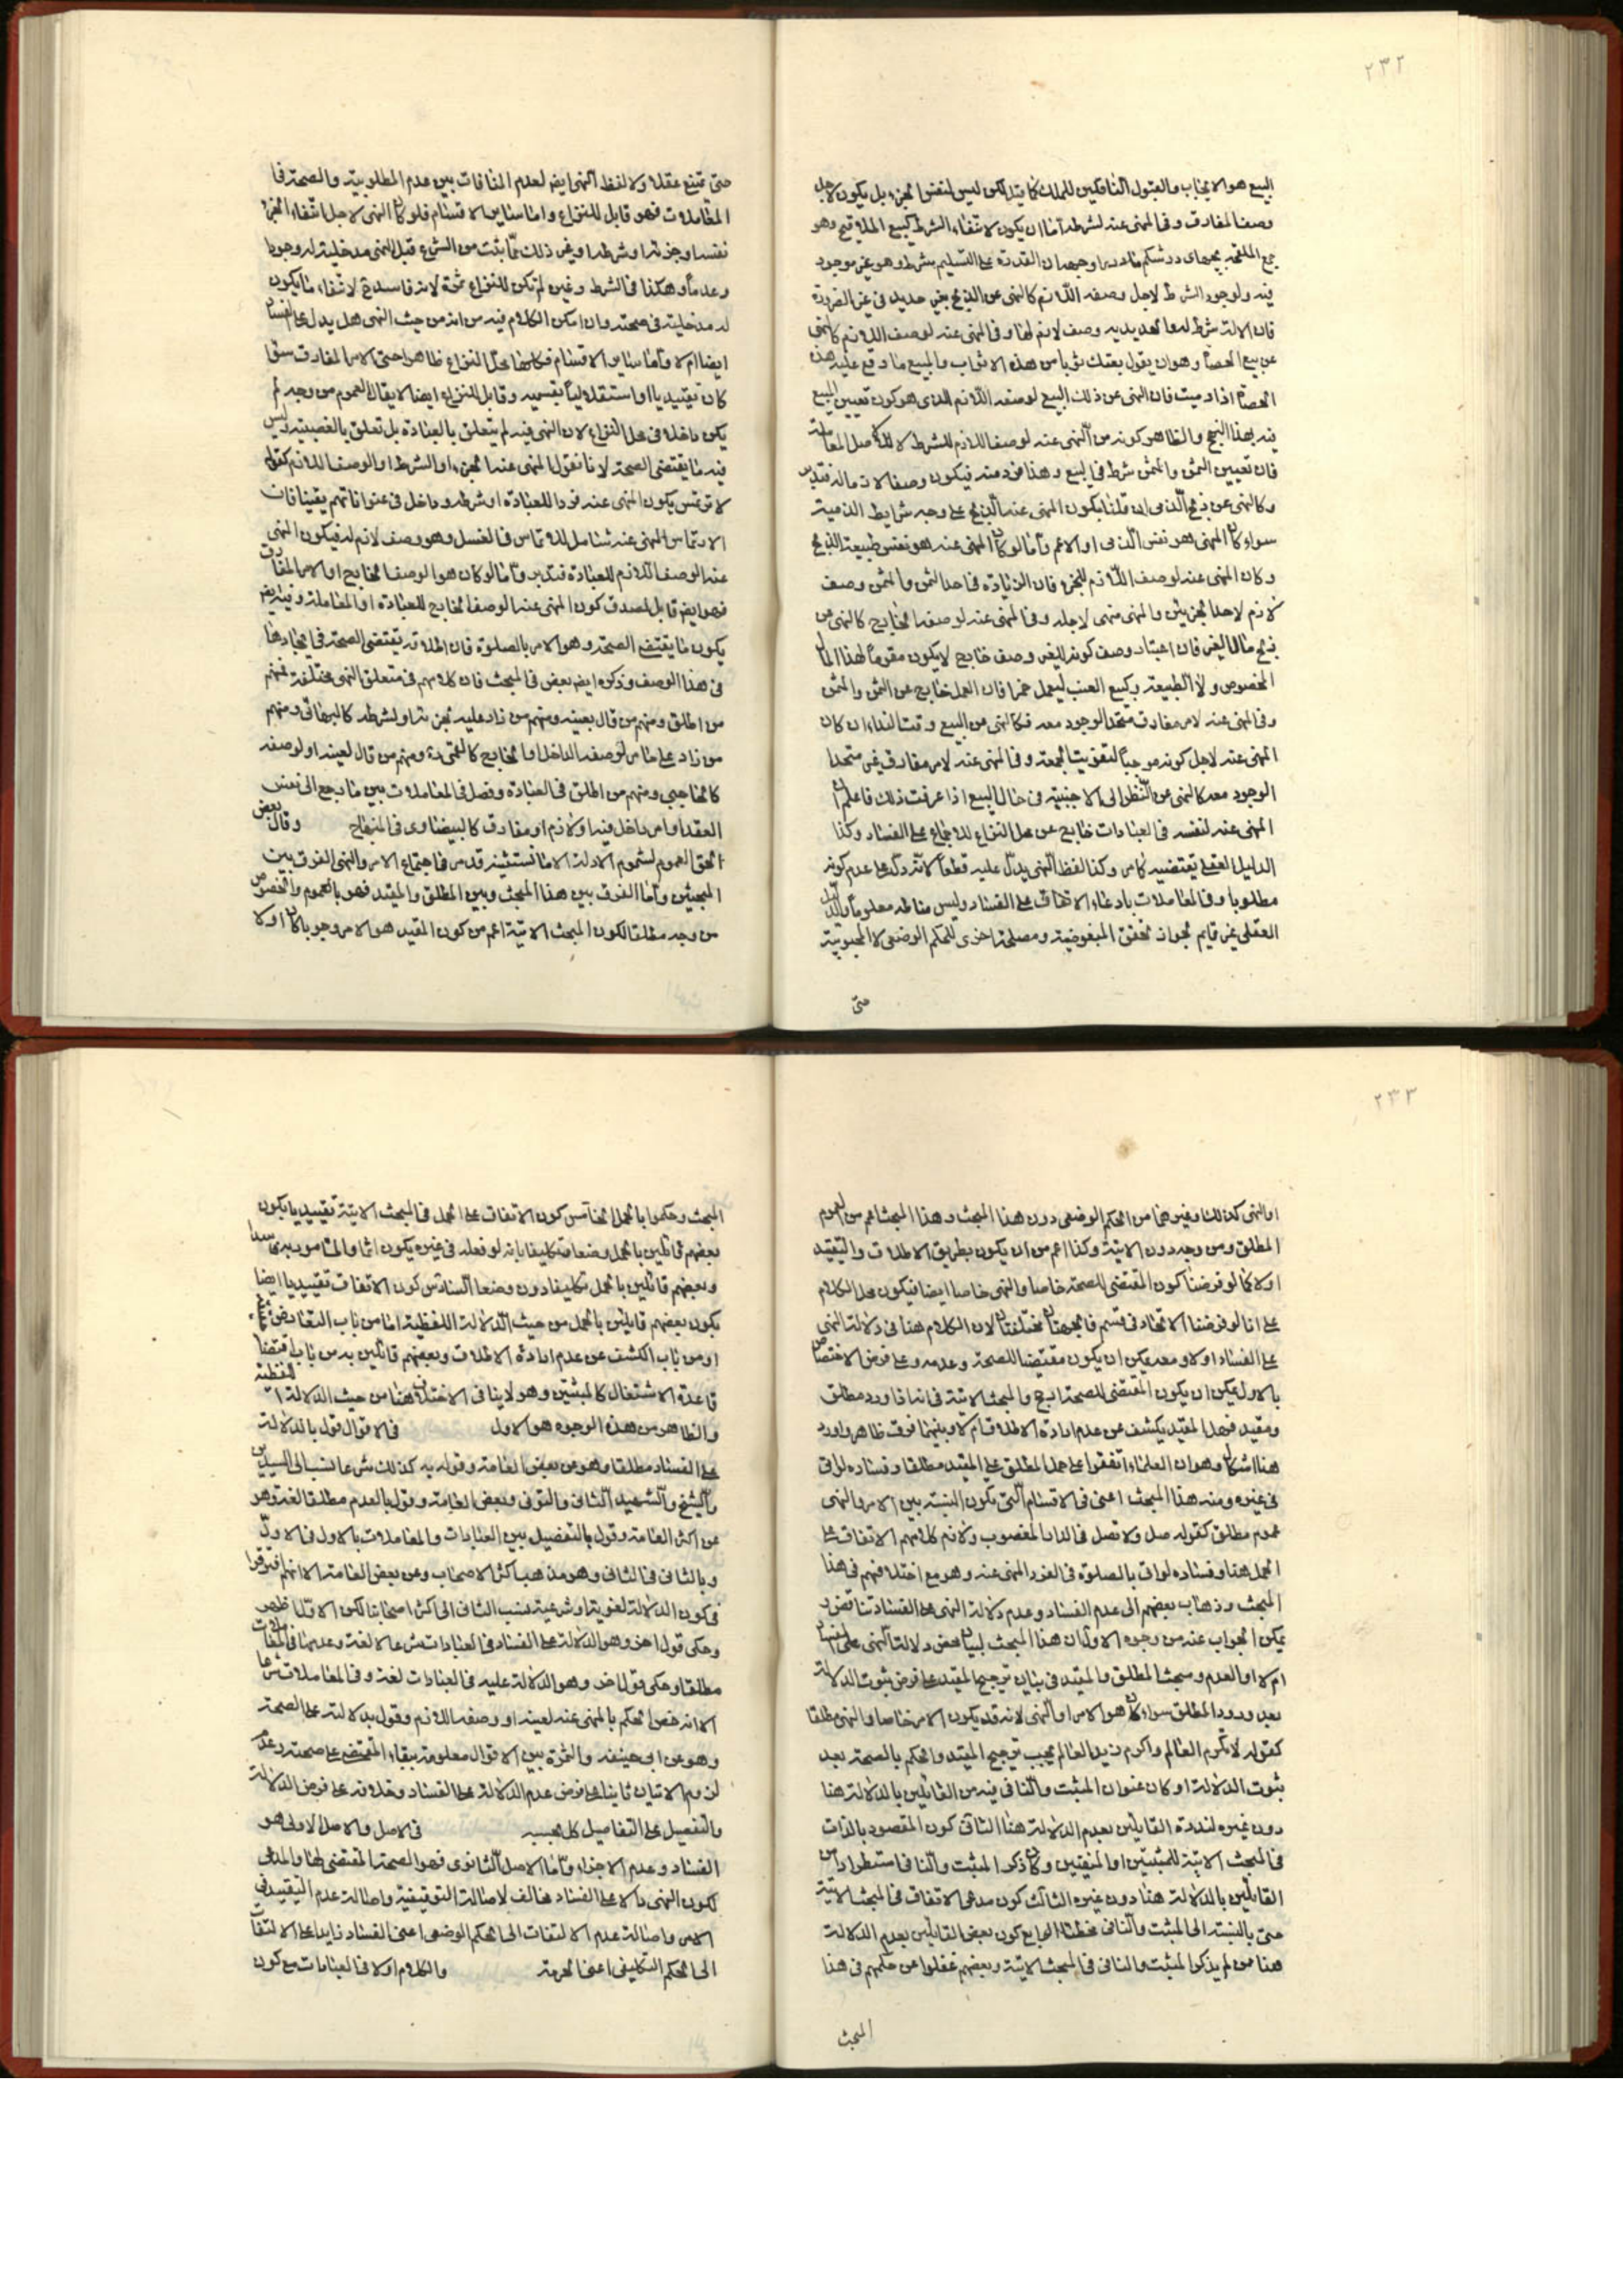 ٢٣٢
البيع هو الايجاب والقبول الناقلين للملك كما قيل لكن ليس لنفس الجزء بل يكون لاجل
وصف المفارق وفى المنهى عنه لشرطه اما ان يكون لانتفاء الشرط كبيع الملاقيح وهو
جمع الملقحة بچهاى در شكم مادر را وجه ان القدرة على التسليم شرط وهو غير موجود
فيه ولوجود الشرط لاجل وصفه اللازم كالنهى عن الذبح بغير حديد فى غير الضرورة
فان الالة شرط له وما بحديدية وصف لازم لها وفى المنهى عنه لوصف اللازم كالنهى
عن بيع الحصاة وهو ان يقول بعتك ثوبا من هذه الاثواب والمبيع ما وقع عليه هذه
الحصاة اذا رميت فان النهى عن ذلك البيع لوصفه اللازم الذى هو كون تعيين المبيع
فيه بهذا النهج والظاهر كونه من المنهى عنه لوصف اللازم للشرط لا لاصل المعاملة
فان تعيين الثمن والمثمن شرط فى البيع وهذا فرد منه فيكون وصفا لازما له فتدبر
وكالنهى عن ذبح الذمى ان قلنا بكون المنهى عنه الذبح على وجه شرايط الذمية
سواء كان المنهى هو نفس الذمى او الاعم واما لو كان المنهى عنه هو نفس طبيعة الذبح
وكان المنهى عنه لوصف اللازم للجزء فان الزيادة فى احد الثمن والمثمن وصف
لازم لاحد الجزئين والمنهى منهى لاجله وفى المنهى عنه لوصفه الخارج كالنهى عن
ذبح مال الغير فان اعتبار وصف كونه للغير وصف خارج لا يكون مقوما لهذا المال
المخصوص ولا الطبيعة وكبيع العنب ليعمل خمرا فان العمل خارج عن الثمن والمثمن
وفى المنهى عنه لامر مفارق متحد الوجود معه فكالنهى عن البيع وقت النداء ان كان
المنهى عنه لاجل كونه موجبا لتفويت الجمعة وفى المنهى عنه لامر مفارق غير متحد
الوجود معه كالنهى عن النظر الى الاجنبية فى حال البيع اذا عرفت ذلك فاعلم ان
المنهى عنه لنفسه فى العبادات خارج عن محل النزاع للاجماع على الفساد وكذا
الدليل العقلى يقتضيه كما مر وكذا لفظ النهى يدل عليه قطعا لانه دل على عدم كونه
مطلوبا وفى المعاملات بادعاء الاتفاق على الفساد وليس مناطه معلوما والدليل
العقلى غير قايم لجواز تحقق المبغوضية ومصلحة اخرى للحكم الوضعى لا المحبوبية
حتى
حتى تمتنع عقلا ولا لفظ النهى ايضا لعدم المنافات بين عدم المطلوبية والصحة فى
المعاملات فهو قابل للنزاع واما ساير الاقسام فلو كان النهى لاجل انتفاء الجزء
نفسا وجزئه او شرطه او غير ذلك مما ثبت من الشرع قبل النهى مدخلية له وجودا
وعدما وهكذا فى الشرط وغيره لم تكن للنزاع ثمرة لانه فاسد ح لانتفاء ما يكون
له مدخلية فى صحته وان امكن الكلام فيه من انه من حيث النهى هل يدل على الفساد
ايضا ام لا واما ساير الاقسام فكلها محل النزاع ظاهرا حتى الامر المفارق سواء
كان تقييديا او استقلاليا بقسميه وقابل للنزاع ايضا لا يقال العموم من وجه لم
يكن داخلا فى محل النزاع لان النهى فيه لم يتعلق بالعبادة بل تعلق بالغصبية وليس
فيه ما يقتضى الصحة لانا نقول المنهى عنه الجزء او الشرط او الوصف اللازم كقوله
لا ترتمس يكون المنهى عنه فردا للعبادة او شرطه وداخل فى عنواناتهم يقينا فان
الارتماس المنهى عنه شامل للارتماس فى الغسل وهو وصف لازم له فيكون المنهى
عنه الوصف اللازم للعبادة فتدبر واما لو كان هو الوصف الخارج او الامر المفارق
فهو ايضا قابل لصدق كون المنهى عنه الوصف الخارج للعبادة او المعاملة وفيه ايضا
يكون ما يقتضى الصحة وهو الامر بالصلوة فان اطلاقه يقتضى الصحة فى ايجادها
فى هذا الوصف وذكره ايضا بعض فى المبحث فان كلامهم فى متعلق النهى مختلفة فمنهم
من اطلق ومنهم من قال بعينه ومنهم من زاد عليه لجزئه او لشرطه كالبرهانى ومنهم
من زاد على ما مر لوصفه الداخل او الخارج كالعميدى ومنهم من قال لعينه او لوصفه
كالحاجبى ومنهم من اطلق فى العبادة وفصل فى المعاملات بين ما رجع الى نفس
العقد او امر داخل فيه او لازم او مفارق كالبيضاوى فى المنهاج وقال بعض
الحق العموم لشموم الادلة الا ما نستثنيه قد مر فى اجتماع الامر والنهى الفرق بين
المبحثين واما الفرق بين هذا المبحث وبين المطلق والمقيد فهو بالعموم والخصوص
من وجه مطلقا لكون المبحث الاتية اعم من كون المقيد هو الامر وجوبا كان او لا
٢٣٣
او النهى كذلك او غيرهما من الحكم الوضعى دون هذا المبحث وهذا المبحث اعم من العموم
المطلق ومن وجه دون الاتية وكذا اعم من ان يكون بطريق الاطلاق والتقييد
او لا كما لو فرضنا كون المقتضى للصحة خاصا والنهى خاصا ايضا فيكون محل الكلام
على انا لو فرضنا الاتحاد فى قسم فالجهتان مختلفتان لان الكلام هنا فى دلالة النهى
على الفساد او لا ومعه يمكن ان يكون مقتضيا للصحة وعدمه وعلى فرض الاختصاص
بالاول يمكن ان يكون المقتضى للصحة ارجح والمبحث الاتية فى انه اذا ورد مطلق
ومقيد فهل المقيد يكشف عن عدم ارادة الاطلاق ام لا وبينهما فرق ظاهر واورد
هنا اشكال وهو ان العلماء اتفقوا على حمل المطلق على المقيد مطلقا وفساده لو اتى
فى غيره ومنه هذا المبحث اعنى فى الاقسام التى يكون النسبة بين الامر والنهى
عموم مطلق كقوله صل ولا تصل فى الدار المغصوب ولازم كلامهم الاتفاق على
الحمل هنا وفساده لو اتى بالصلوة فى الفرد المنهى عنه وهو مع اختلافهم فى هذا
المبحث وذهاب بعضهم الى عدم الفساد وعدم دلالة النهى على الفساد تناقض و
يمكن الجواب عنه من وجوه الاول ان هذا المبحث لبيان محض دلالة النهى على الفساد
ام لا او العدم ومبحث المطلق والمقيد فى بيان ترجيح المقيد على فرض ثبوت الدلالة
بعد ورود المطلق سواء كان هو الامر او النهى لانه قد يكون الامر خاصا والنهى مطلقا
كقوله لا تكرم العالم واكرم زيد العالم يجب ترجيح المقيد والحكم بالصحة بعد
ثبوت الدلالة او كان عنوان المثبت والنافى فيه من القائلين بالدلالة هنا
دون غيره لندرة القايلين بعدم الدلالة هنا الثانى كون المقصود بالذات
فى المبحث الاتية للمثبتين او المنفيين وكان ذكر المثبت والنافى استطرادا من
القائلين بالدلالة هنا دون غيره الثالث كون مدعى الاتفاق فى المبحث الاتية
حتى بالنسبة الى المثبت والنافى مخطئا الرابع كون بعض القايلين بعدم الدلالة
هنا ممن لم يذكر المثبت والنافى فى المبحث الاتية وبعضهم غفلوا عن حكمهم فى هذا
المبحث
المبحث وحكموا بالحمل الخامس كون الاتفاق على الحمل فى المبحث الاتية تقييديا يكون
بعضهم قائلين بالحمل وضعا وتكليفا بانه لو فعله فى غيره يكون اثما والمامور به فاسدا
وبعضهم قائلين بالحمل تكليفا دون وضعا السادس كون الاتفاق تقييديا ايضا
يكون بعضهم قايلين بالحمل من حيث الدلالة اللفظية اما من باب التعارض
او من باب الكشف عن عدم ارادة الاطلاق وبعضهم قائلين به من باب اقتضاء
قاعدة الاشتغال كالمثبتين وهو لا ينافى الاختلاف هنا من حيث الدلالة اللفظية
والظاهر من هذه الوجوه هو الاول فى الاقوال قول بالدلالة
على الفساد مطلقا وهو عن بعض العامة وقول به كذلك شرعا نسب الى السيدين
والشيخ والشهيد الثانى والتونى وبعض العامة وقول بالعدم مطلقا لغة وهو
عن اكثر العامة وقول بالتفصيل بين العبادات والمعاملات بالاول فى الاول
وبالثانى فى الثانى وهو مذهب اكثر الاصحاب وعن بعض العامة الا انهم افترقوا
فى كون الدلالة لغوية او شرعية ينسب الثانى الى اكثر اصحابنا لكن الاول اظهر
وحكى قول اخر وهو الدلالة على الفساد فى العبادات شرعا لا لغة وعدمها فى المعاملات
مطلقا وحكى قول اخر وهو الدلالة عليه فى العبادات لغة وفى المعاملات شرعا
الا انه خص الحكم بالمنهى عنه لعينه او وصفه اللازم وقول بدلالته على الصحة
وهو عن ابى حنيفة والثمرة بين الاقوال معلومة ببقاء المقتضى على صحته وعدم
لزوم الاتيان ثانيا على فرض عدم الدلالة على الفساد وخلافه على فرض الدلالة
والتفصيل على التفاصيل كل بحسبه فى الاصل والاصل الاولى هو
الفساد وعدم الاجزاء واما الاصل الثانوى فهو الصحة المقتضى لها والمدعى
لكون النهى دالا على الفساد مخالف لاصالة التوقيفية واصالة عدم التقييد فى
الامر واصالة عدم الالتفات الى الحكم الوضعى اعنى الفساد زايدا على الالتفات
الى الحكم التكليفى اعنى الحرمة والكلام اولا فى العبادات مع كون